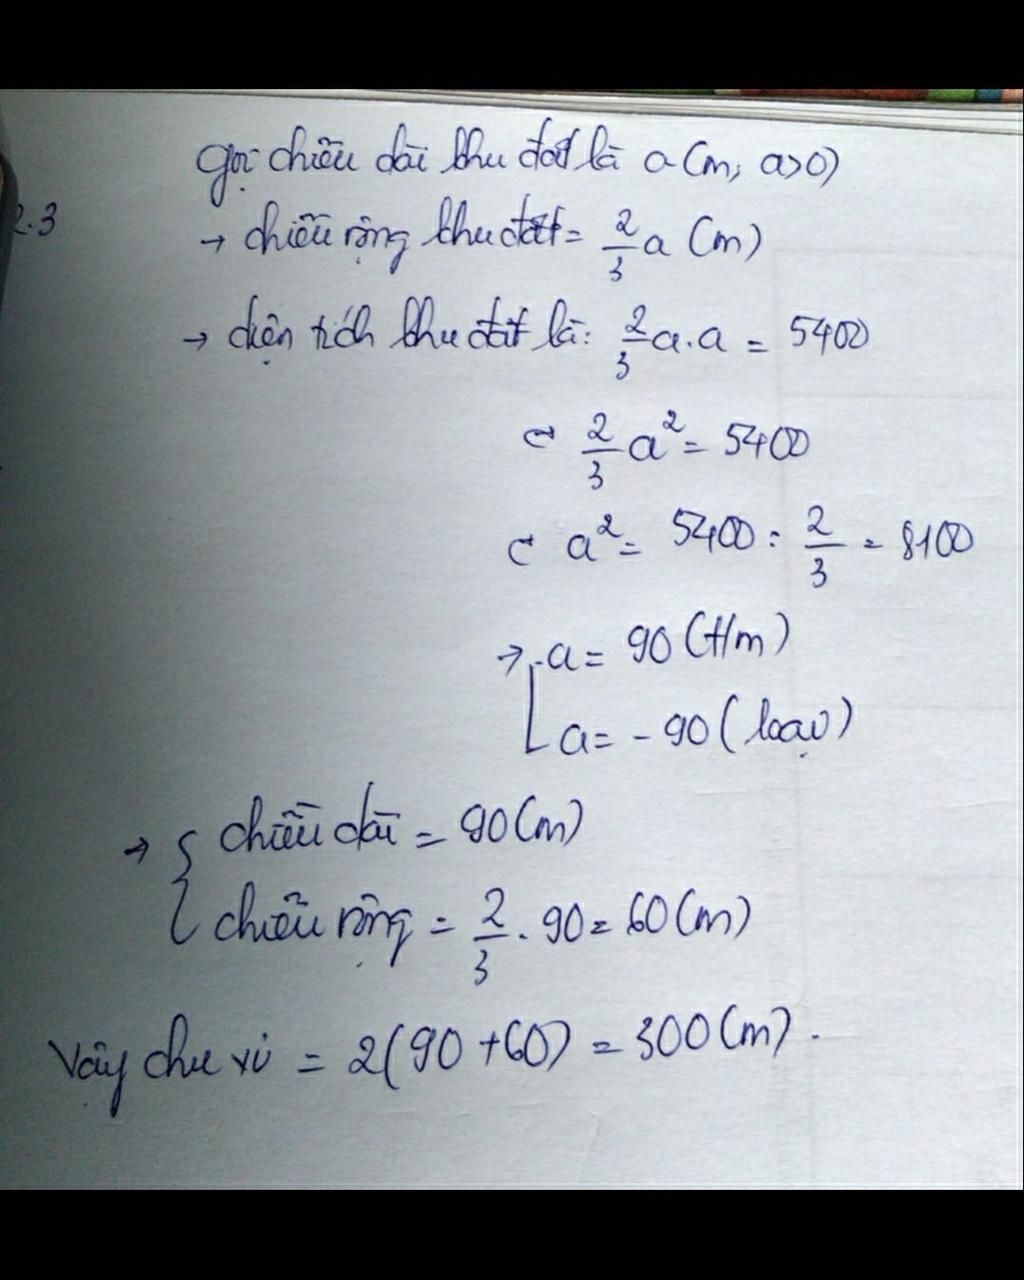 gọi chiều dài khu đất là a (m; a>0)
2.3
→ chiều rộng khu đất = 2/3 a (m)
→ diện tích khu đất là: 2/3 a.a = 5400
⊂ 2/3 a² = 5400
⊂ a² = 5400 : 2/3 = 8100
→ [ a = 90 (t/m)
a = - 90 (loại)
→ { chiều dài = 90 (m)
chiều rộng = 2/3 . 90 = 60 (m)
Vậy chu vi = 2(90 + 60) = 300 (m).